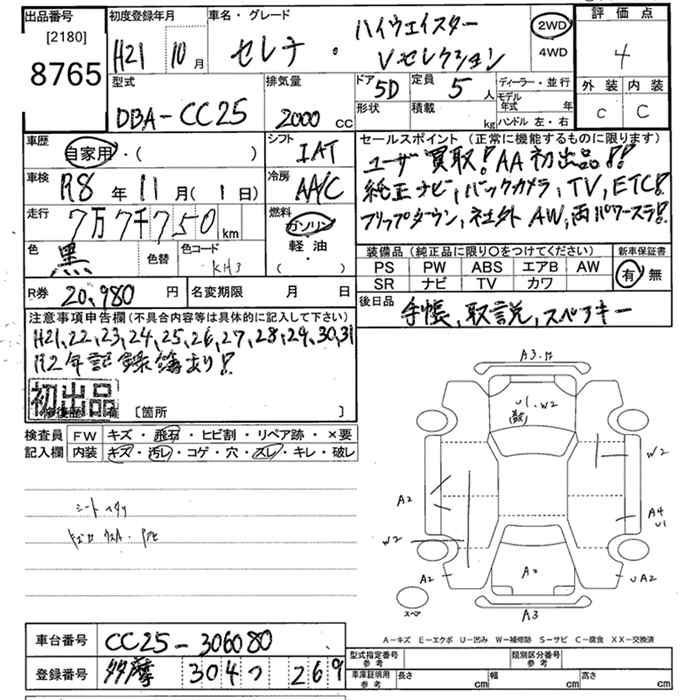 出品番号
[2180]
8765
初度登録年月
H21 10月
車名・グレード
セレナ・ハイウェイスター
Vセレクション
2WD
4WD
評価点
4
外装 内装
C C
型式
DBA-CC25
排気量
2000 cc
ドア 5D
定員 5人
形状
積載 kg
ディーラー・並行
モデル年式 年
ハンドル 左・右
車歴
自家用・( )
シフト
IAT
車検
R8年11月(1日)
冷房
AA/C
走行
7万7千750km
燃料
ガソリン
軽油
( )
色
黒
色替
色コード
KH3
セールスポイント(正常に機能するものに限ります)
ユーザ買取!AA初出品!!
純正ナビ,バックカメラ,TV,ETC!
フリップダウン,社外AW,両パワースラ!
装備品(純正品に限り〇をつけてください)
PS PW ABS エアB AW
SR ナビ TV カワ
新車保証書
有 無
R券 20,980円
名変期限 月 日
後日品
手帳,取説,スペアキー
注意事項申告欄(不具合内容等は具体的に記入して下さい)
H21,22,23,24,25,26,27,28,29,30,31
R2年記録簿あり!
初出品
修復歴
〔箇所 〕
検査員記入欄
FW キズ・飛石・ヒビ割・リペア跡・×要
内装 キズ・汚レ・コゲ・穴・スレ・キレ・破レ
A3.
U1.W2
W2
A2
A4
U1
W2
A2
A2
UA2
スペア
A3
A-キズ E-エクボ U-凹み W-補修跡 S-サビ C-腐食 XX-交換済
車台番号
CC25-306080
登録番号
多摩 304 つ 269
型式指定番号
参考
類別区分番号
参考
車庫証明用
参考
長さ cm
幅 cm
高さ cm